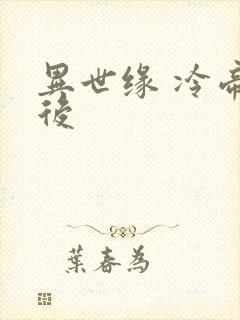 異世缘 冷帝
後
葉春為